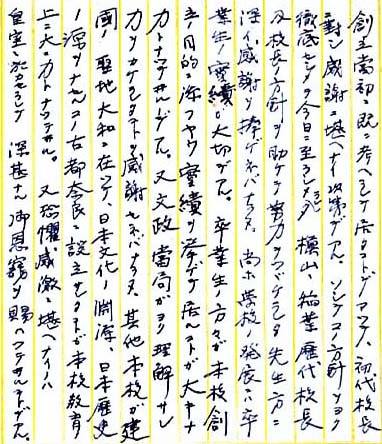 創立当初ニ既ニ考ヘラレテ居ツタコトデアツテ、初代校長
ニ対シ感謝ニ堪ヘナイ次第デアル。ソシテコノ方針ヲヨク
徹底セシメテ今日ニ至ラシメタ 槇山、稲葉歴代校長
及校長ノ方針ヲ助ケテ努力ヲツヾケラレタ先生方ニ
深イ感謝ヲ捧ゲネバナラヌ。尚ホ学校ノ発展ニハ卒
業生ノ実績ガ大切デアル。卒業生ノ方々ガ本校創
立ノ目的ニ添フヤウ実績ヲ挙ゲテ居ルコトガ大キナ
力トナツテヰルノデアル。又文政当局ガヨク理解サレ
力ヲカケラレタコトヲ感謝セネバナラヌ。其他本校ガ建
国ノ聖地大和ニ在ツテ、日本文化ノ淵源、日本歴史
ノ源ヲナセルコノ古都奈良ニ設立サレタコトガ本校教育
上ニ大ナル力トナツテヰル。又恐懼感激ニ堪ヘナイノハ
皇室ニ於カセラレテ 深甚ナル御恩寵ヲ賜ハツテヰルコトデアル。